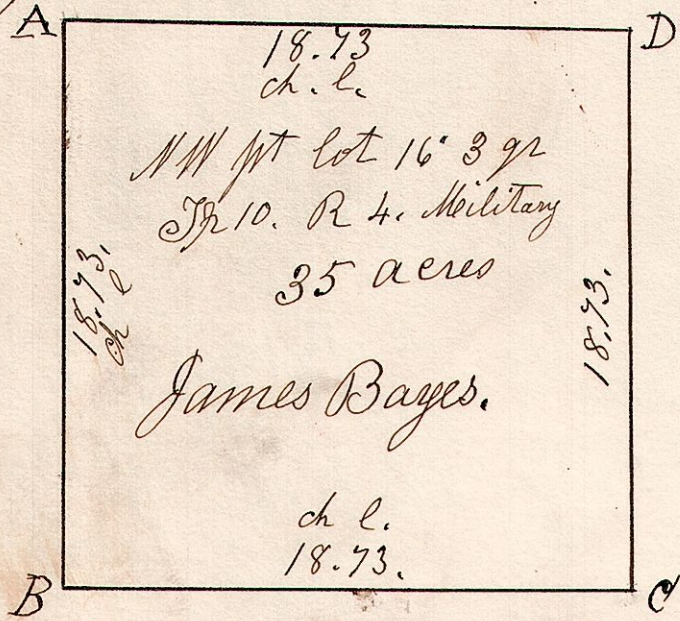 A D
18.73
ch. l.
NW pt lot 16 3 qr
Tp 10. R 4. Military
35 acres
18.73.
ch l
18.73.
James Bayes.
ch l.
18.73.
B C